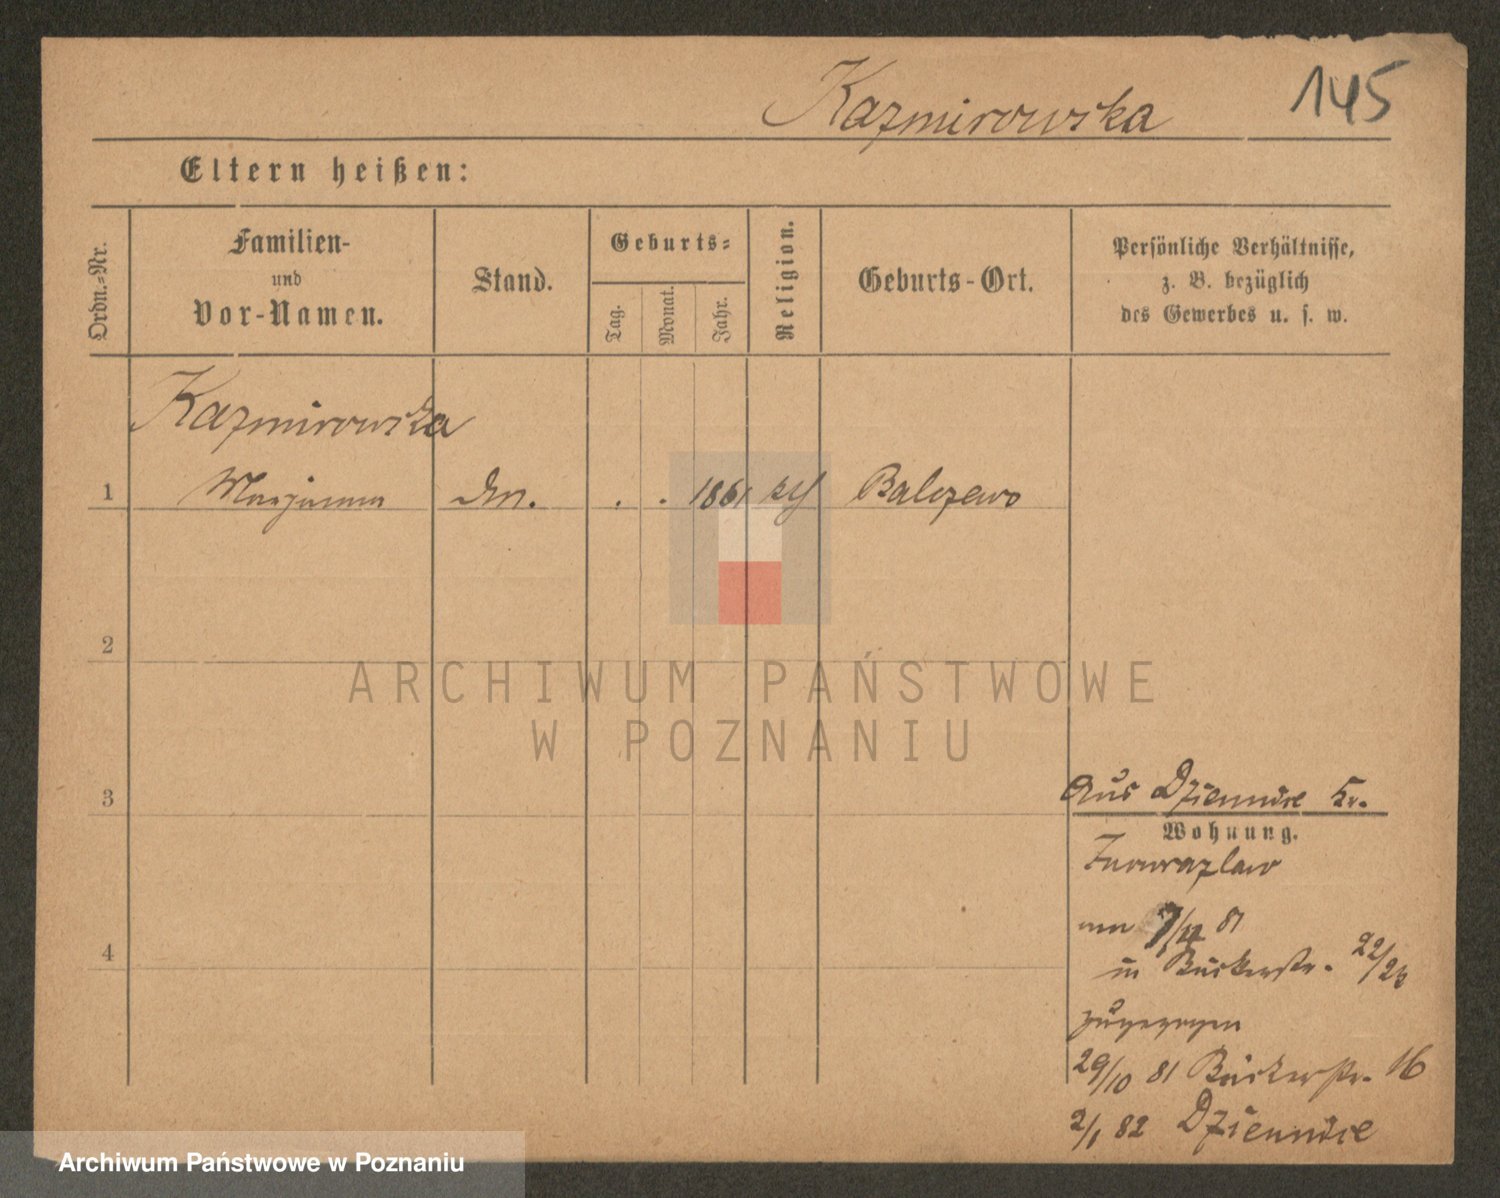 Kazmirowska
145
Eltern heißen:
Ordn.-Nr.
Familien-
und
Vor-Namen.
Stand.
Geburts-
Tag.
Monat.
Jahr.
Religion.
Geburts-Ort.
Persönliche Verhältnisse,
z. B. bezüglich
des Gewerbes u. s. w.
Kazmirowska
1 Marjanna . . 1861 kth Balczewo
2
3
4
ARCHIWUM PAŃSTWOWE
W POZNANIU
Aus Dziennice Kr.
Wohnung.
Inowrazlaw
81
in Bäckerstr. 22/23
zugezogen
29/10 81 Bäckerstr. 16
2/1 82 Dziennice
Archiwum Państwowe w Poznaniu